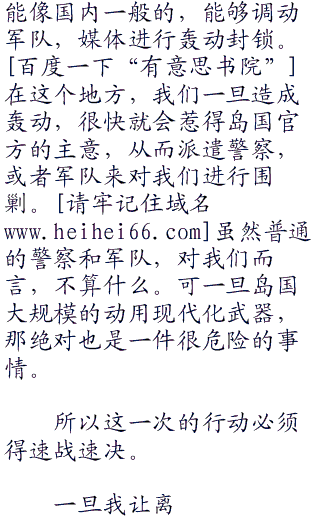 能像国内一般的，能够调动
军队，媒体进行轰动封锁。
[百度一下“有意思书院”]
在这个地方，我们一旦造成
轰动，很快就会惹得岛国官
方的主意，从而派遣警察，
或者军队来对我们进行围
剿。[请牢记住域名
www.heihei66.com]虽然普通
的警察和军队，对我们而
言，不算什么。可一旦岛国
大规模的动用现代化武器，
那绝对也是一件很危险的事
情。
所以这一次的行动必须
得速战速决。
一旦我让离